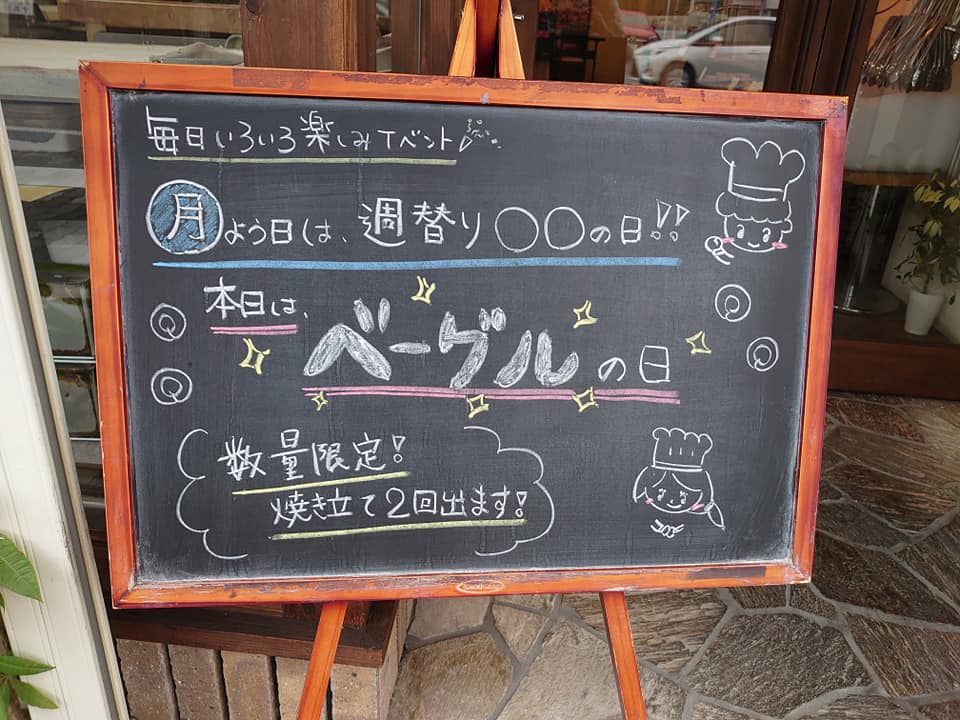 毎日いろいろ楽しみイベント
月よう日は、週替り○○の日!!
本日は、
ベーグルの日
数量限定!
焼き立て2回出ます!